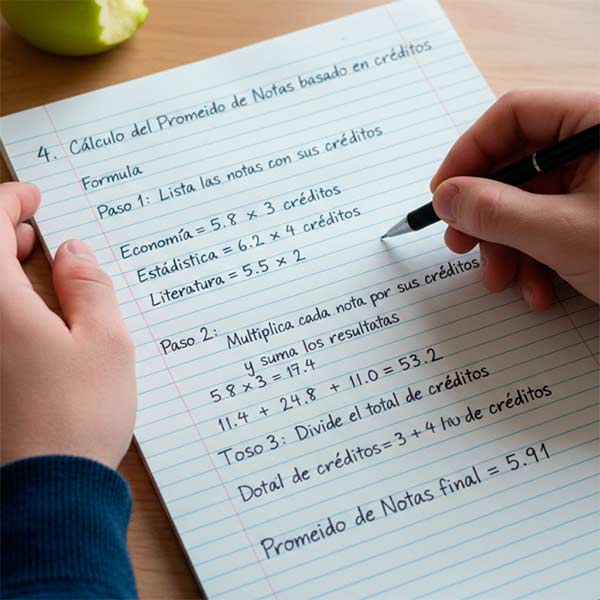 4. Cálculo del Promeido de Notas basado en créditos
Formula
Paso 1: Lista las notas con sus créditos
Economía = 5.8 × 3 créditos
Estádistica = 6.2 × 4 créditos
Literatura = 5.5 × 2
Paso 2: Multiplica cada nota por sus créditos
y suma los resultatas
5.8 × 3 = 17.4
11.4 + 24.8 + 11.0 = 53.2
Toso 3: Divide el total de créditos
Dotal de créditos = 3 + 4 de créditos
Promeido de Notas final = 5.91